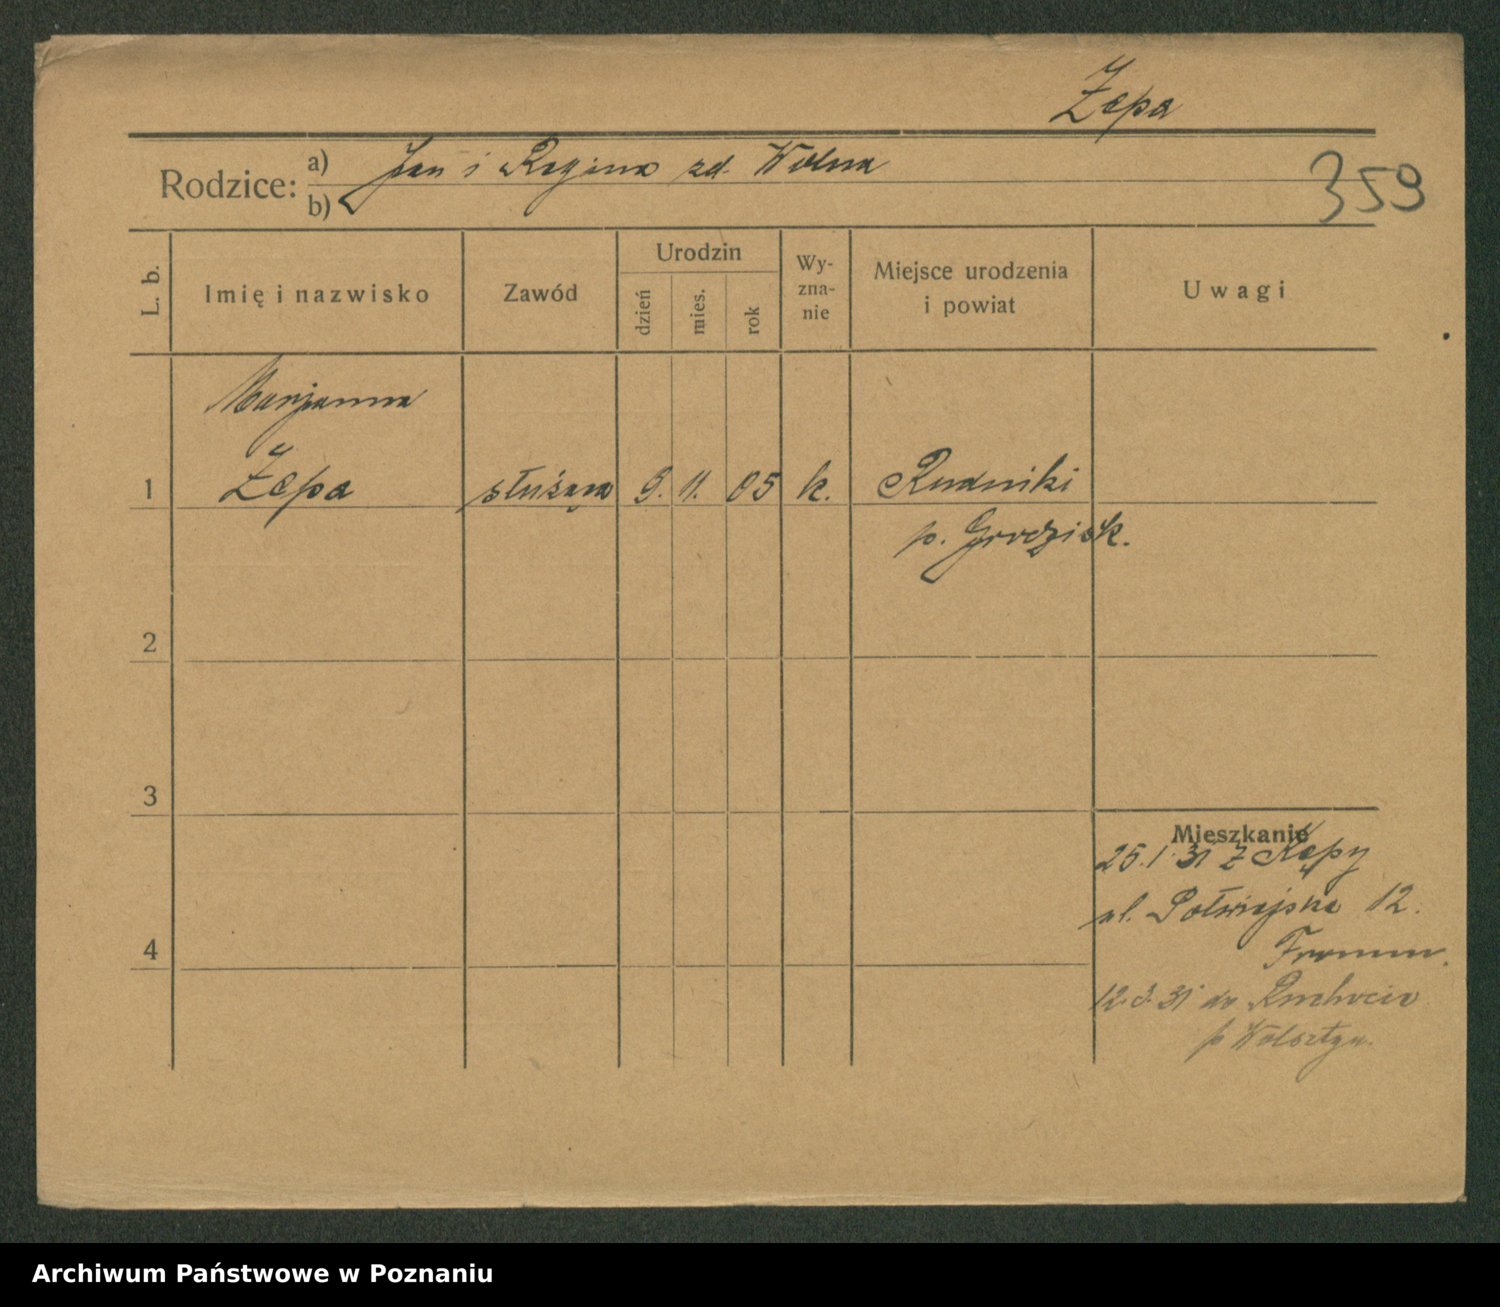 Żepa
Rodzice: a) Jan i Regina zd. Wolna
b)
359
L. b.
Imię i nazwisko
Zawód
Urodzin
dzień
mies.
rok
Wy-
zna-
nie
Miejsce urodzenia
i powiat
Uwagi
Marjanna
1 Żepa służąca 9. 11. 05 k. Rudniki
p. Grodzisk.
2
3
4
Mieszkanie
25.1.31 z Kępy
ul. Półwiejska 12.
Fromm.
12.3.31 do Ruchocic
p Wolsztyn.
Archiwum Państwowe w Poznaniu